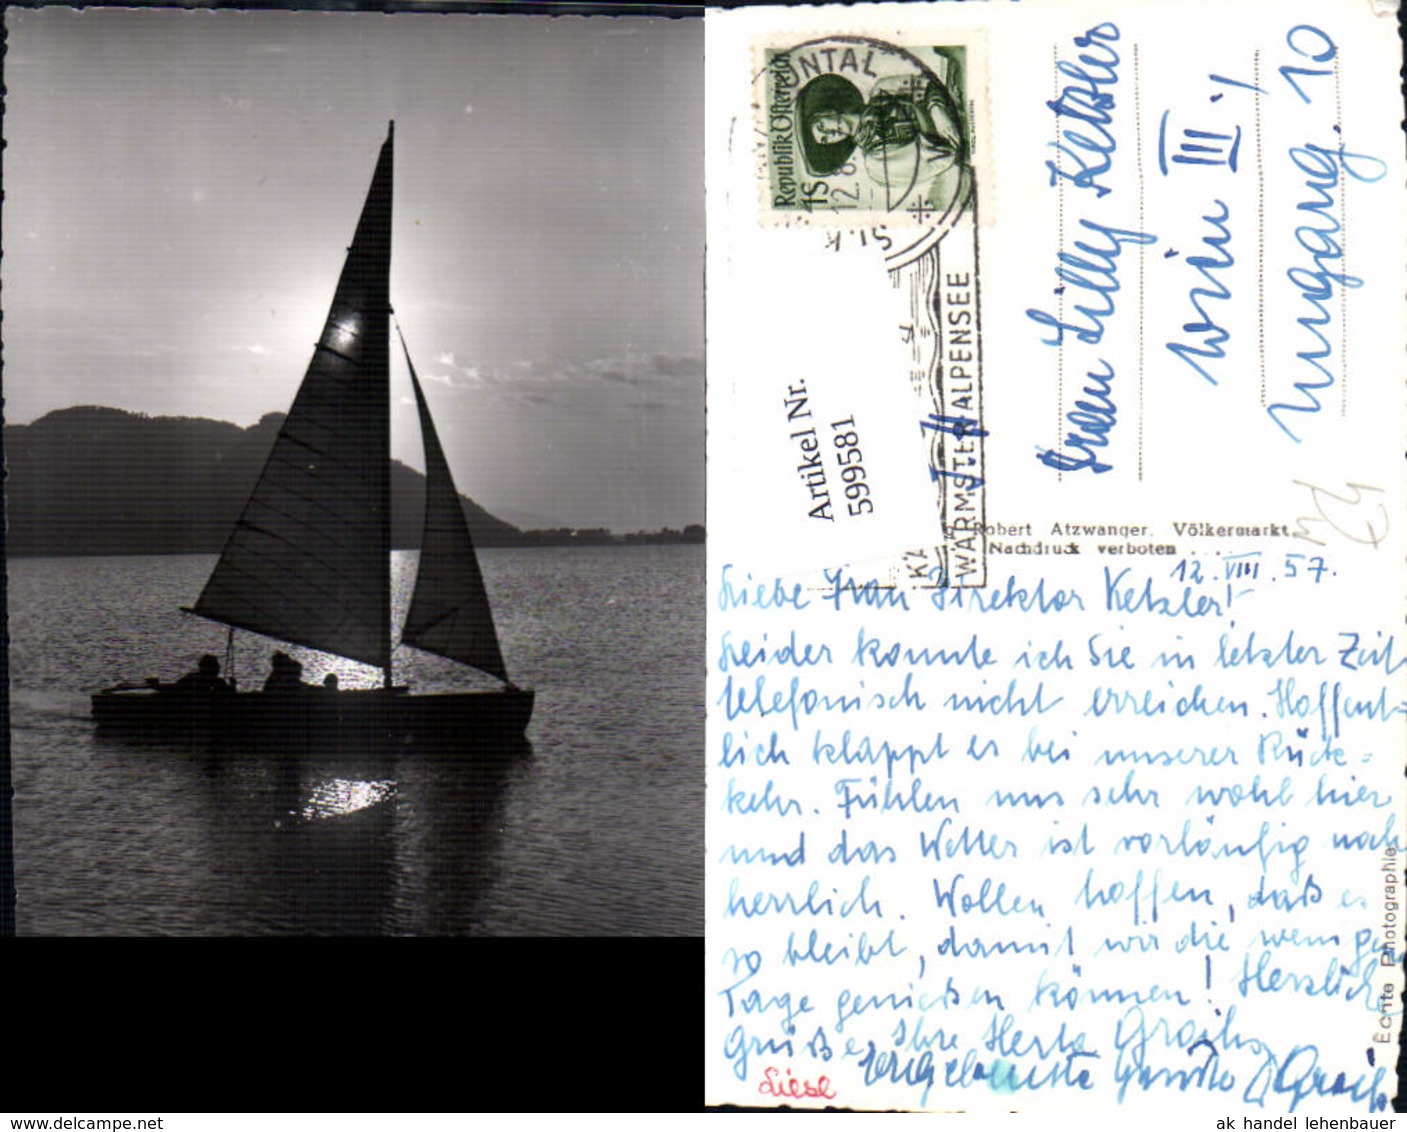 Republik Österreich
1S
12.8
WÄRMSTER ALPENSEE
Artikel Nr.
599581
Lilly Ketzler
Wien III./
Ungarg. 10
Robert Atzwanger. Völkermarkt.
Nachdruck verboten
12. VIII. 57.
Liebe Frau Direktor Ketzler!
Leider konnte ich Sie in letzter Zeit
telefonisch nicht erreichen. Hoffent-
lich klappt es bei unserer Rück-
kehr. Fühlen uns sehr wohl hier
und das Wetter ist vorläufig noch
herrlich. Wollen hoffen, daß es
so bleibt, damit wir die wenigen
Tage genießen können! Herzliche
Grüße Ihre Herta
Liese
Echte Photographie
ak handel lehenbauer